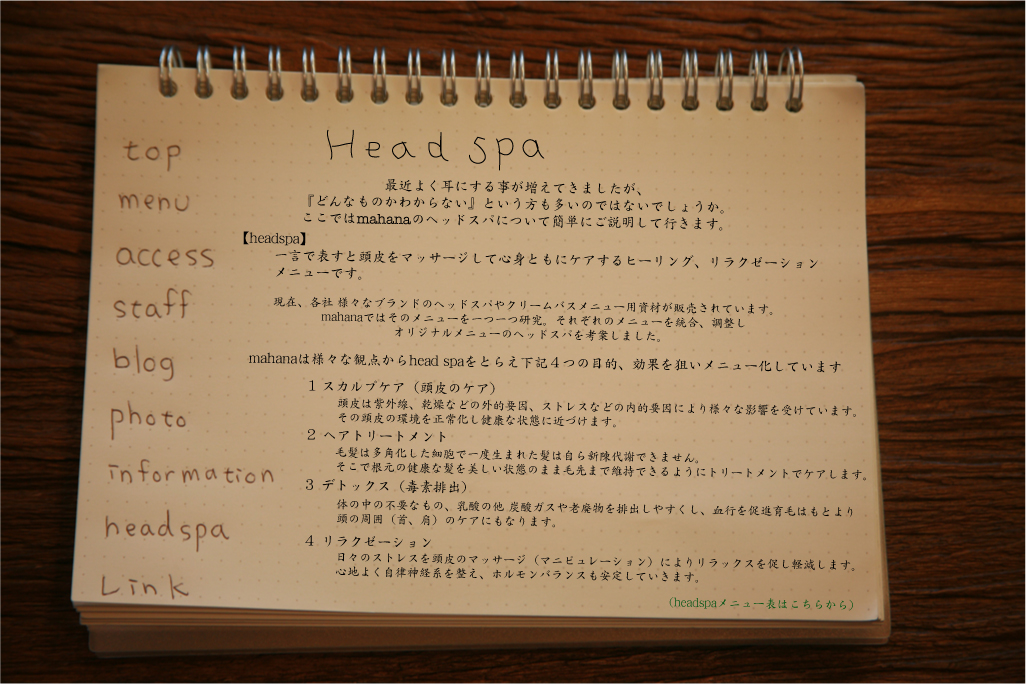 Head spa
top
menu
access
staff
blog
photo
information
headspa
Link
最近よく耳にする事が増えてきましたが、
『どんなものかわからない』という方も多いのではないでしょうか。
ここではmahanaのヘッドスパについて簡単にご説明して行きます。
【headspa】
一言で表すと頭皮をマッサージして心身ともにケアするヒーリング、リラクゼーション
メニューです。
現在、各社 様々なブランドのヘッドスパやクリームバスメニュー用資材が販売されています。
mahanaではそのメニューを一つ一つ研究。それぞれのメニューを統合、調整し
オリジナルメニューのヘッドスパを考案しました。
mahanaは様々な観点からhead spaをとらえ下記４つの目的、効果を狙いメニュー化しています
１ スカルプケア（頭皮のケア）
頭皮は紫外線、乾燥などの外的要因、ストレスなどの内的要因により様々な影響を受けています。
その頭皮の環境を正常化し健康な状態に近づけます。
２ ヘアトリートメント
毛髪は多角化した細胞で一度生まれた髪は自ら新陳代謝できません。
そこで根元の健康な髪を美しい状態のまま毛先まで維持できるようにトリートメントでケアします。
３ デトックス（毒素排出）
体の中の不要なもの、乳酸の他 炭酸ガスや老廃物を排出しやすくし、血行を促進育毛はもとより
頭の周囲（首、肩）のケアにもなります。
４ リラクゼーション
日々のストレスを頭皮のマッサージ（マニピュレーション）によりリラックスを促し軽減します。
心地よく自律神経系を整え、ホルモンバランスも安定していきます。
（headspaメニュー表はこちらから）